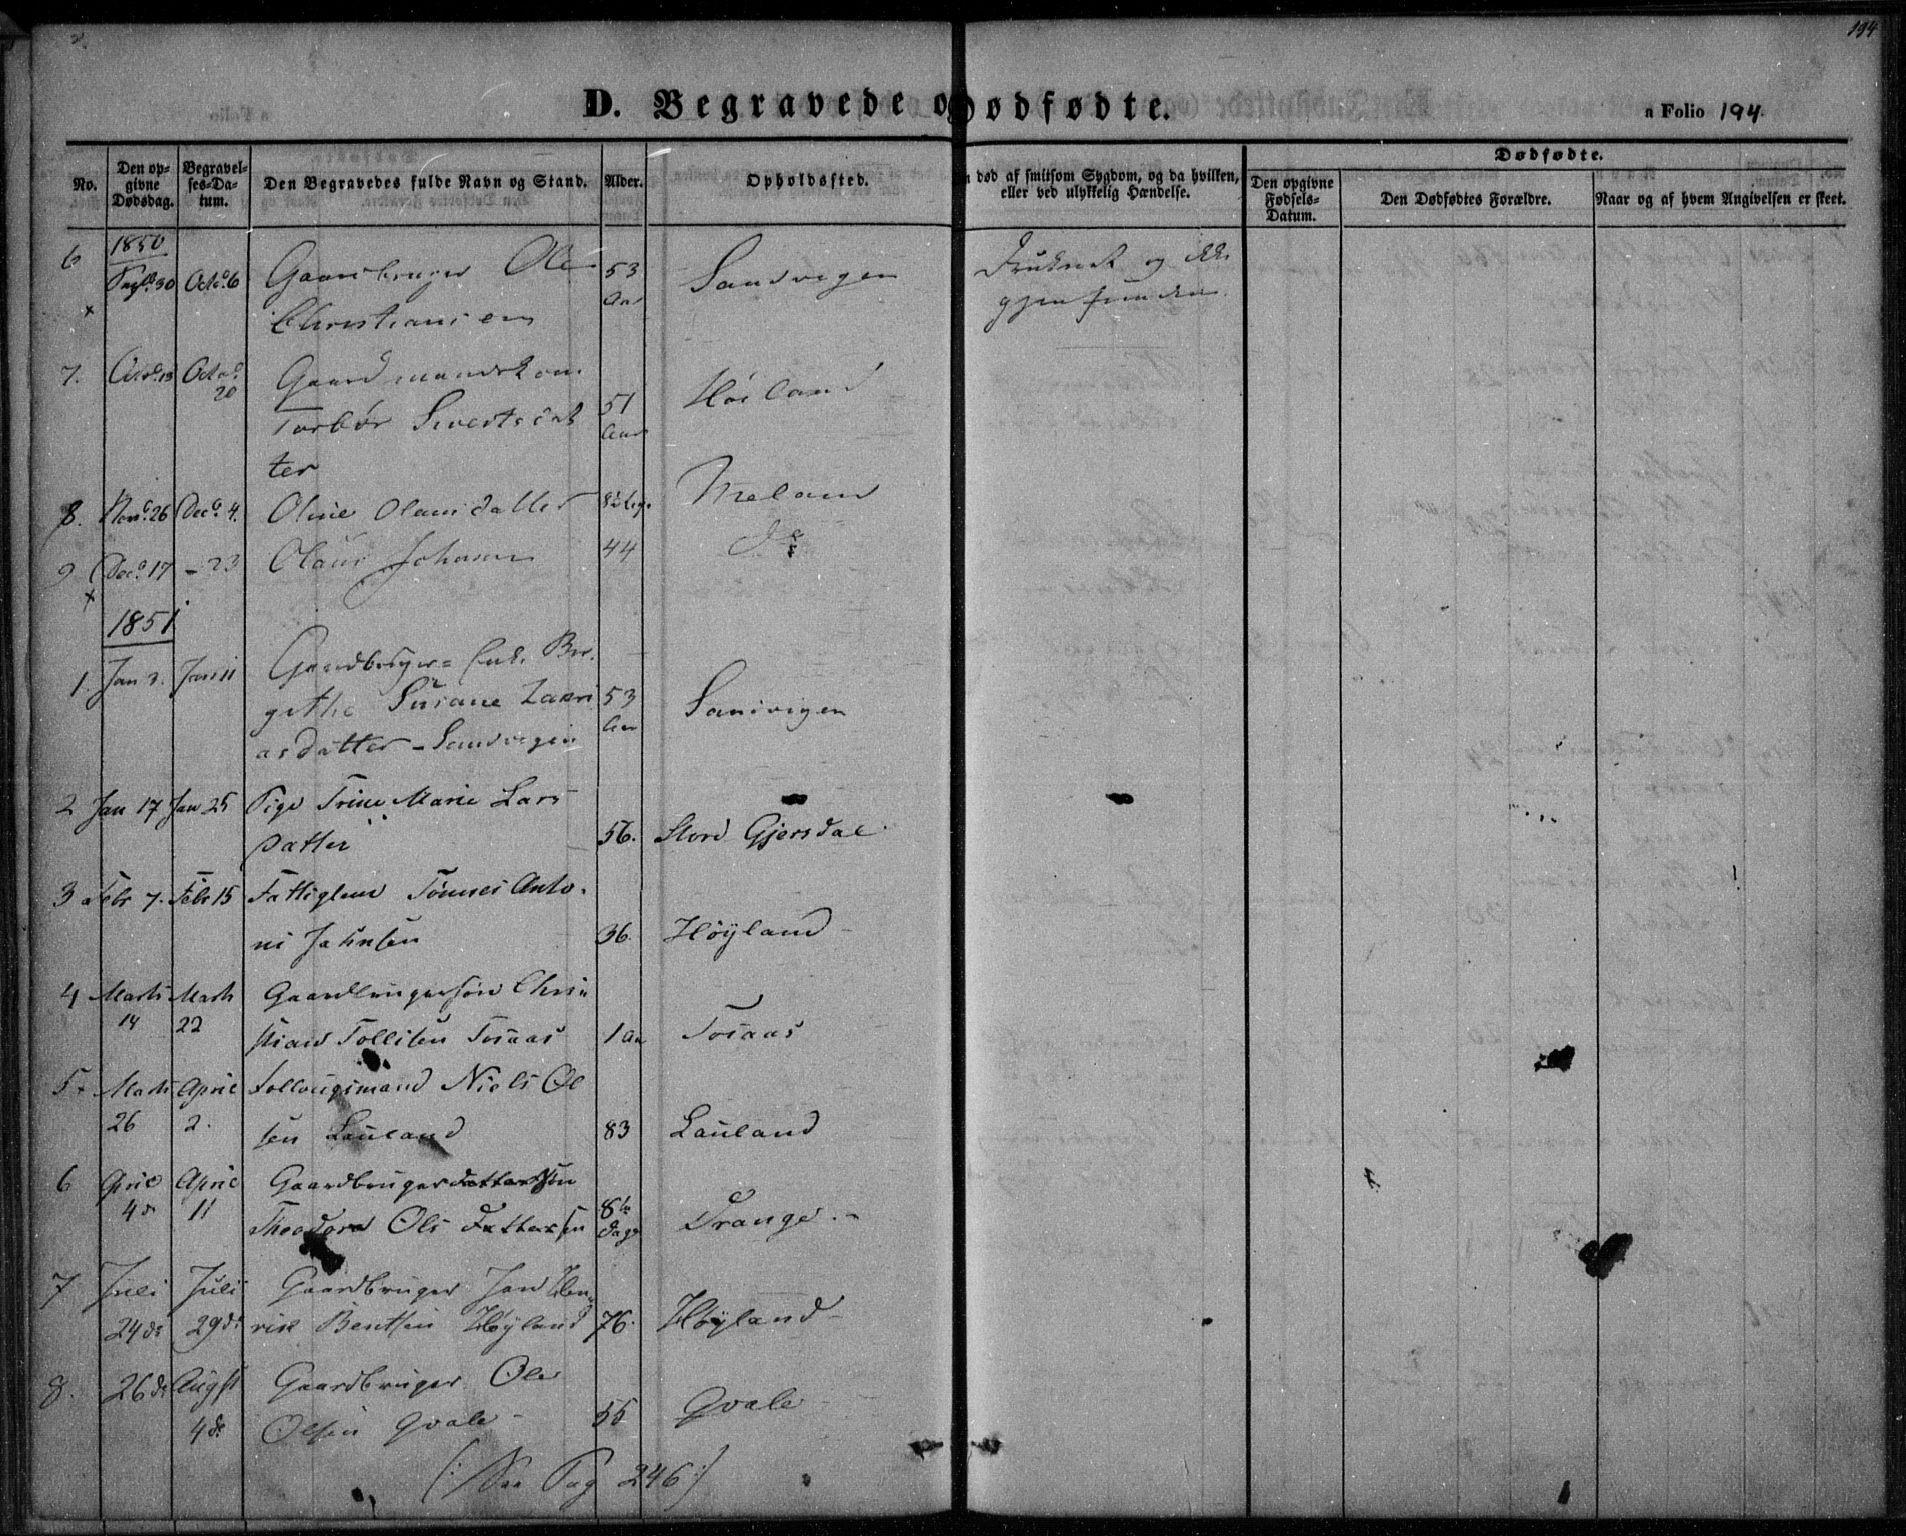 194
D. Begravede og Dødfødte.
a Folio 194.
No.
Den opgivne Dødsdag.
Begravelses-Datum.
Den Begravedes fulde Navn og Stand.
Alder.
Opholdssted.
død af smitsom Sygdom, og da hvilken, eller ved ulykkelig Hændelse.
Dødfødte.
Den opgivne Fødsels-Datum.
Den Dødfødtes Forældre.
Naar og af hvem Angivelsen er skeet.
1850
6 30 Octbr 6 Gaardbruger Ole 53 Sandvigen Druknet og ikke
Christiansen Aar gjenfunden
7. Octbr 13 Octobr 20 Gaardmandskone
Torbør Sivertsdat 51 Høiland
ter Aar
8. Novbr 26 Decbr 4. Oline Olausdatter Meland
9 Decbr 17 - 23 Olaus Johan 44 do
1851
1. Jan 3. Jan 11 Gaardbruger= Enke Bir
githe Susane Zakri 53 Sandvigen
asdatter - Sandvigen Aar
2 Jan 17 Jan 25 Pige Trine Marie Lars
datter 56. Store Gjersdal
3 Febr 7. Febr 15 Fattiglem Tønnes Anto
ni Jahnsen 36. Høÿland -
4 Marts Marts Gaardbrugersøn Chri=
14 22 stian Tollisen Tosaas 1 Aar Tosaas
5 Marts April Follougsmand Niels Ol
26 2. sen Lauland 83 Lauland
6 April April Gaardbruger datter Søn
4de 11 Theodore Ols datter sen 8te Dage Drange. -
7 Juli Juli Gaardbruger Jan Hen=
24de 29de rik Bentsen Høÿland 76. Høÿland -
8. 26de Augst Gaardbruger Ole
4de Olsen Qvale - 55 Qvale -
(: See Pag 246 :)